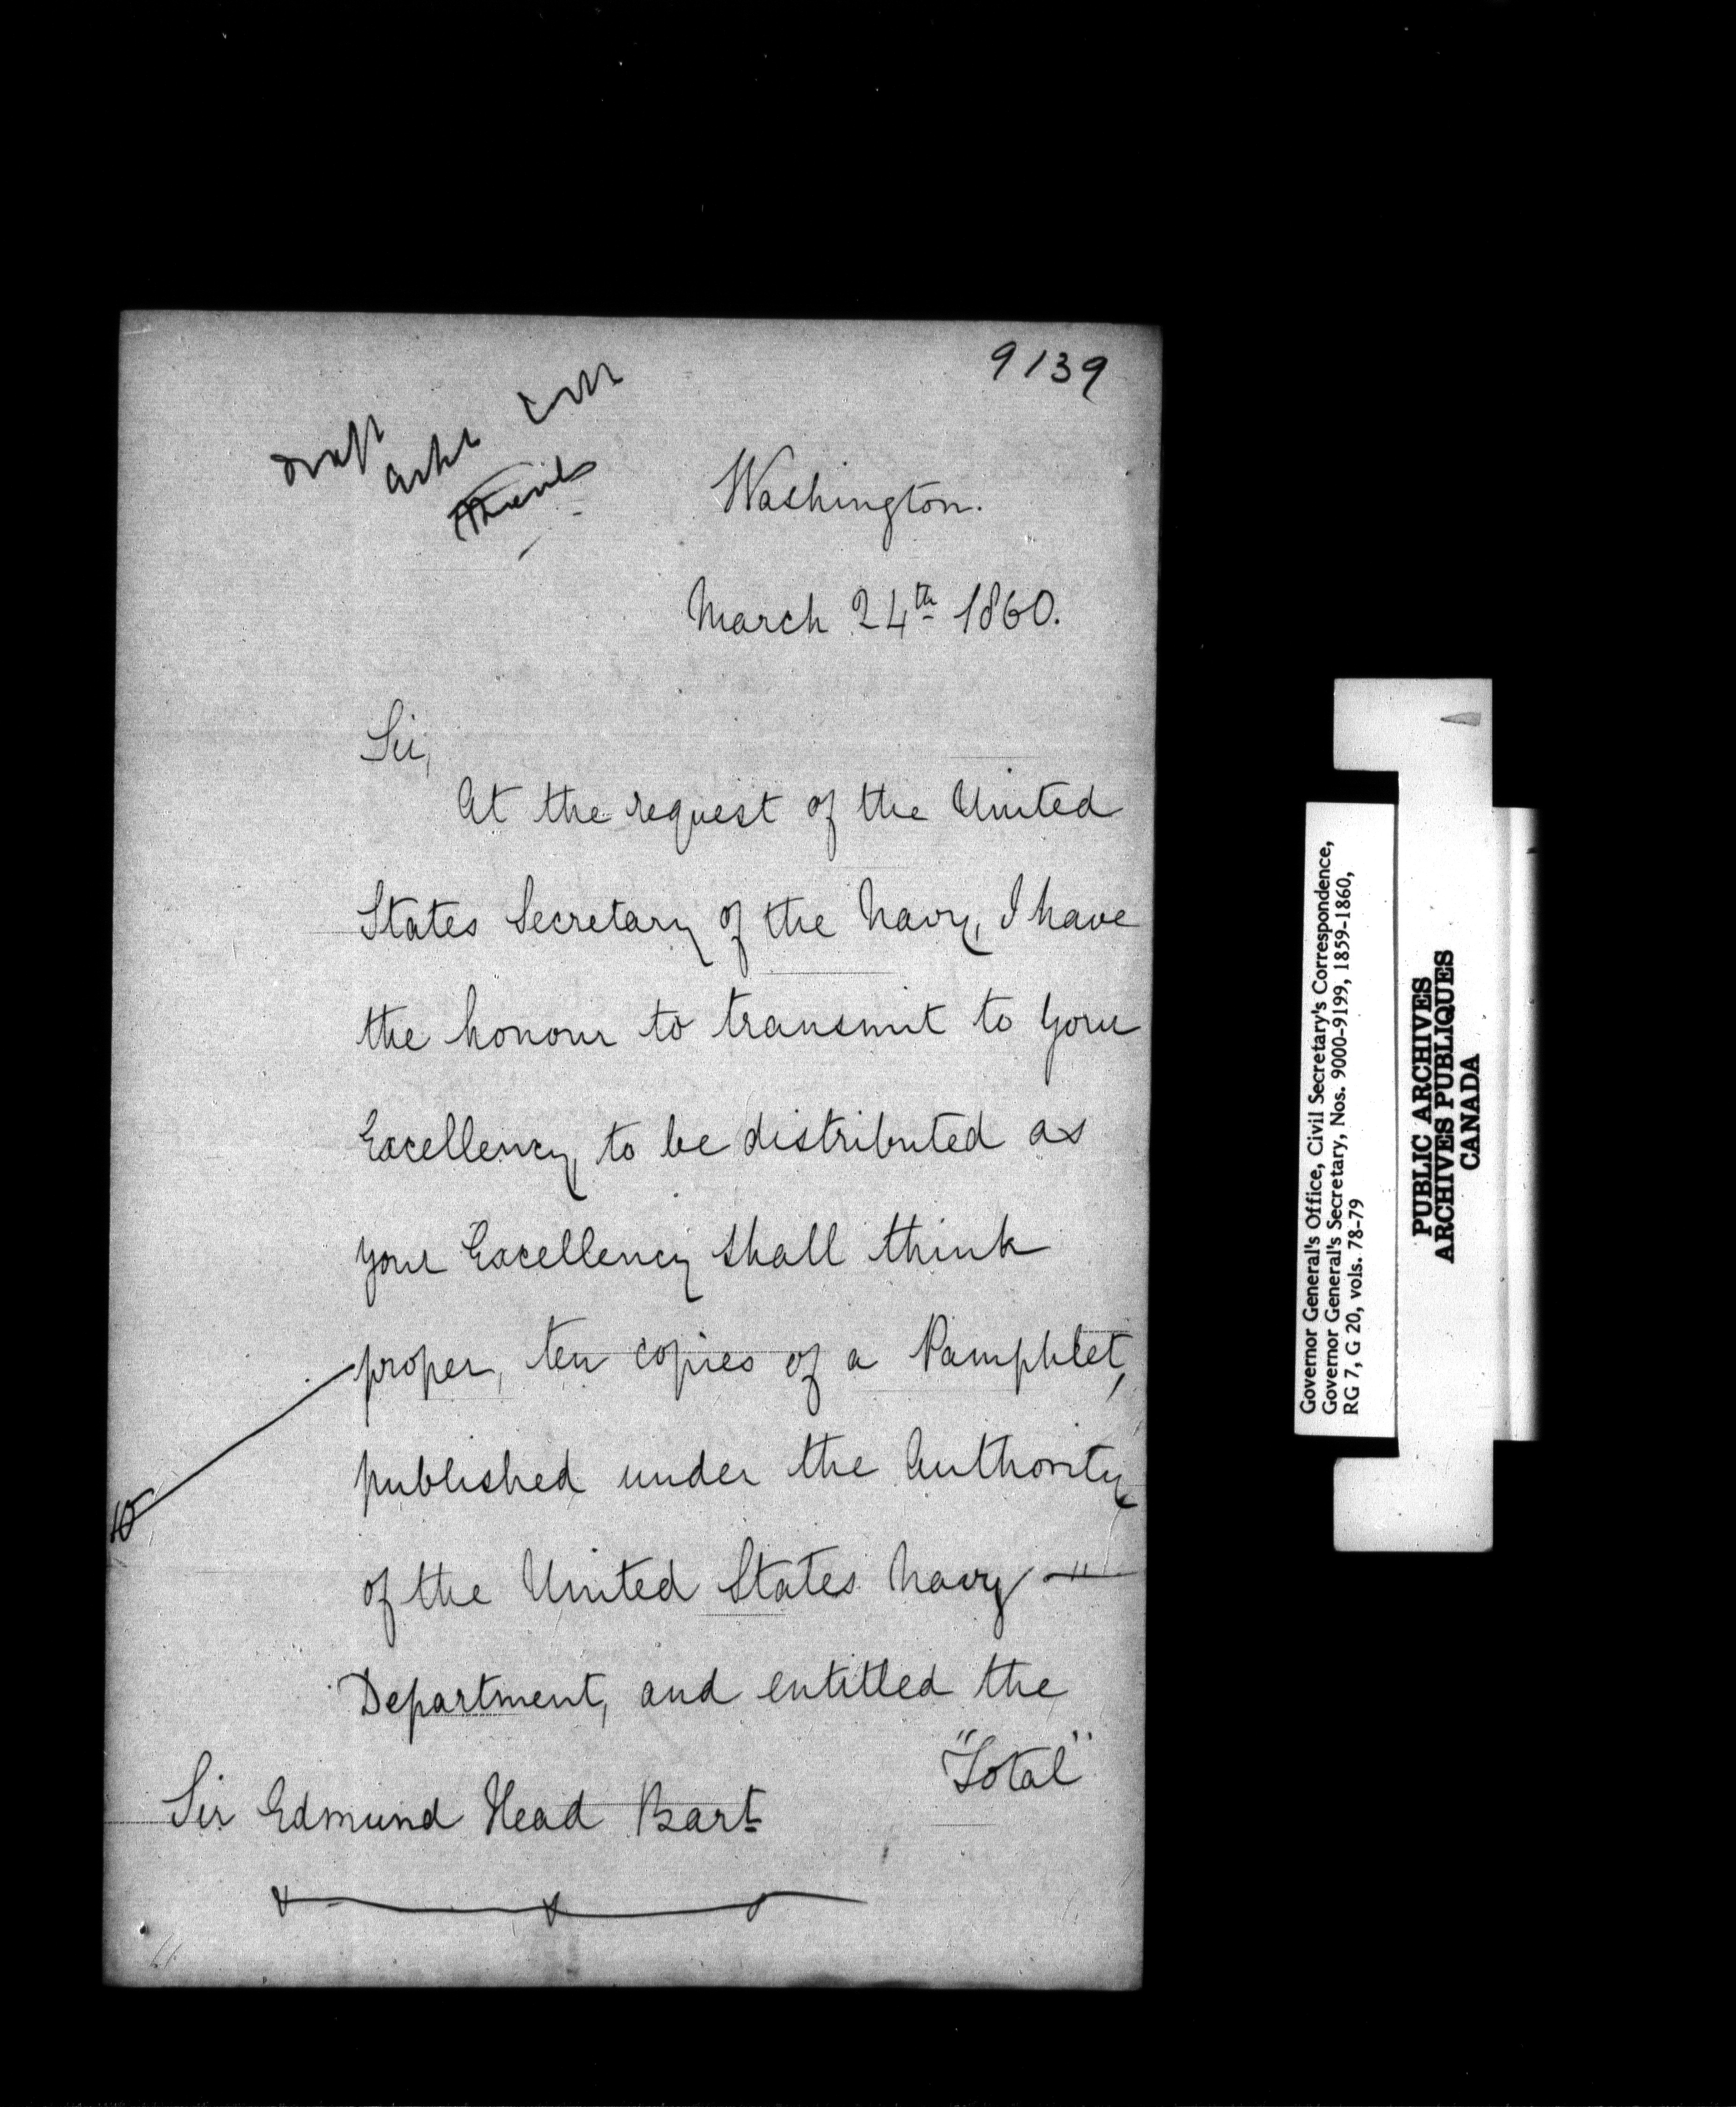 9139
Draft
Washington.
March 24th 1860.
Sir,
At the request of the United
States Secretary of the Navy, I have
the honour to transmit to Your
Excellency, to be distributed as
your Excellency shall think
proper, ten copies of a Pamphlet,
published under the Authority
of the United States Navy —
Department, and entitled the
"Total"
Sir Edmund Head Bart
10
Governor General's Office, Civil Secretary's Correspondence,
Governor General's Secretary, Nos. 9000-9199, 1859-1860,
RG 7, G 20, vols. 78-79
PUBLIC ARCHIVES
ARCHIVES PUBLIQUES
CANADA